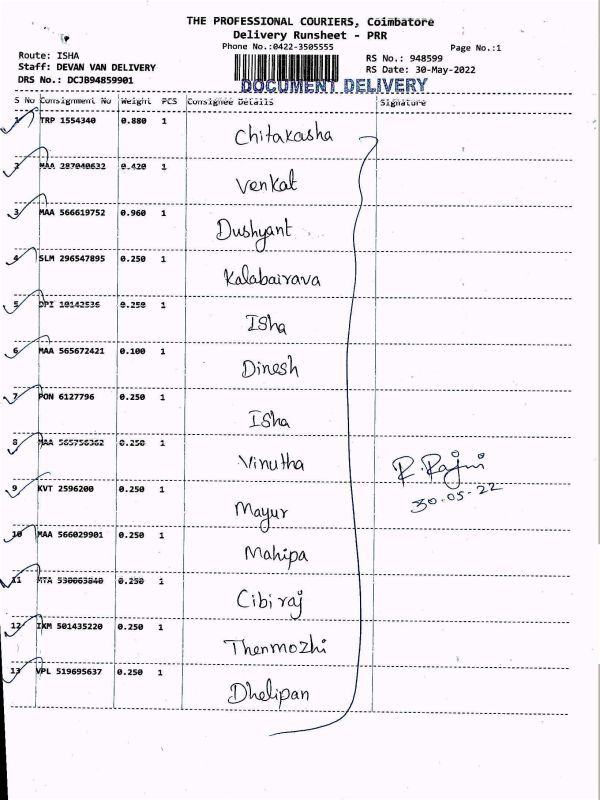 THE PROFESSIONAL COURIERS, Coimbatore
Delivery Runsheet - PRR
Phone No.:0422-3505555 Page No.:1
Route: ISHA RS No.: 948599
Staff: DEVAN VAN DELIVERY RS Date: 30-May-2022
DRS No.: DCJB94859901
DOCUMENT DELIVERY
S No Consignment No Weight PCS Consignee Details Signature
1 TRP 1554340 0.880 1 Chitakasha
2 MAA 287040632 0.420 1 Venkat
3 MAA 566619752 0.960 1 Dushyant
4 SLM 296547895 0.250 1 Kalabairava
5 DPI 10142536 0.250 1 Isha
6 MAA 565672421 0.100 1 Dinesh
7 PON 6127796 0.250 1 Isha
8 MAA 565756362 0.250 1 Vinutha
R. Rajni
9 KVT 2596200 0.250 1 Mayur
30.05-22
10 MAA 566029901 0.250 1 Mahipa
11 MTA 530063840 0.250 1 Cibi raj
12 IKM 501435220 0.250 1 Thenmozhi
13 VPL 519695637 0.250 1 Dhelipan